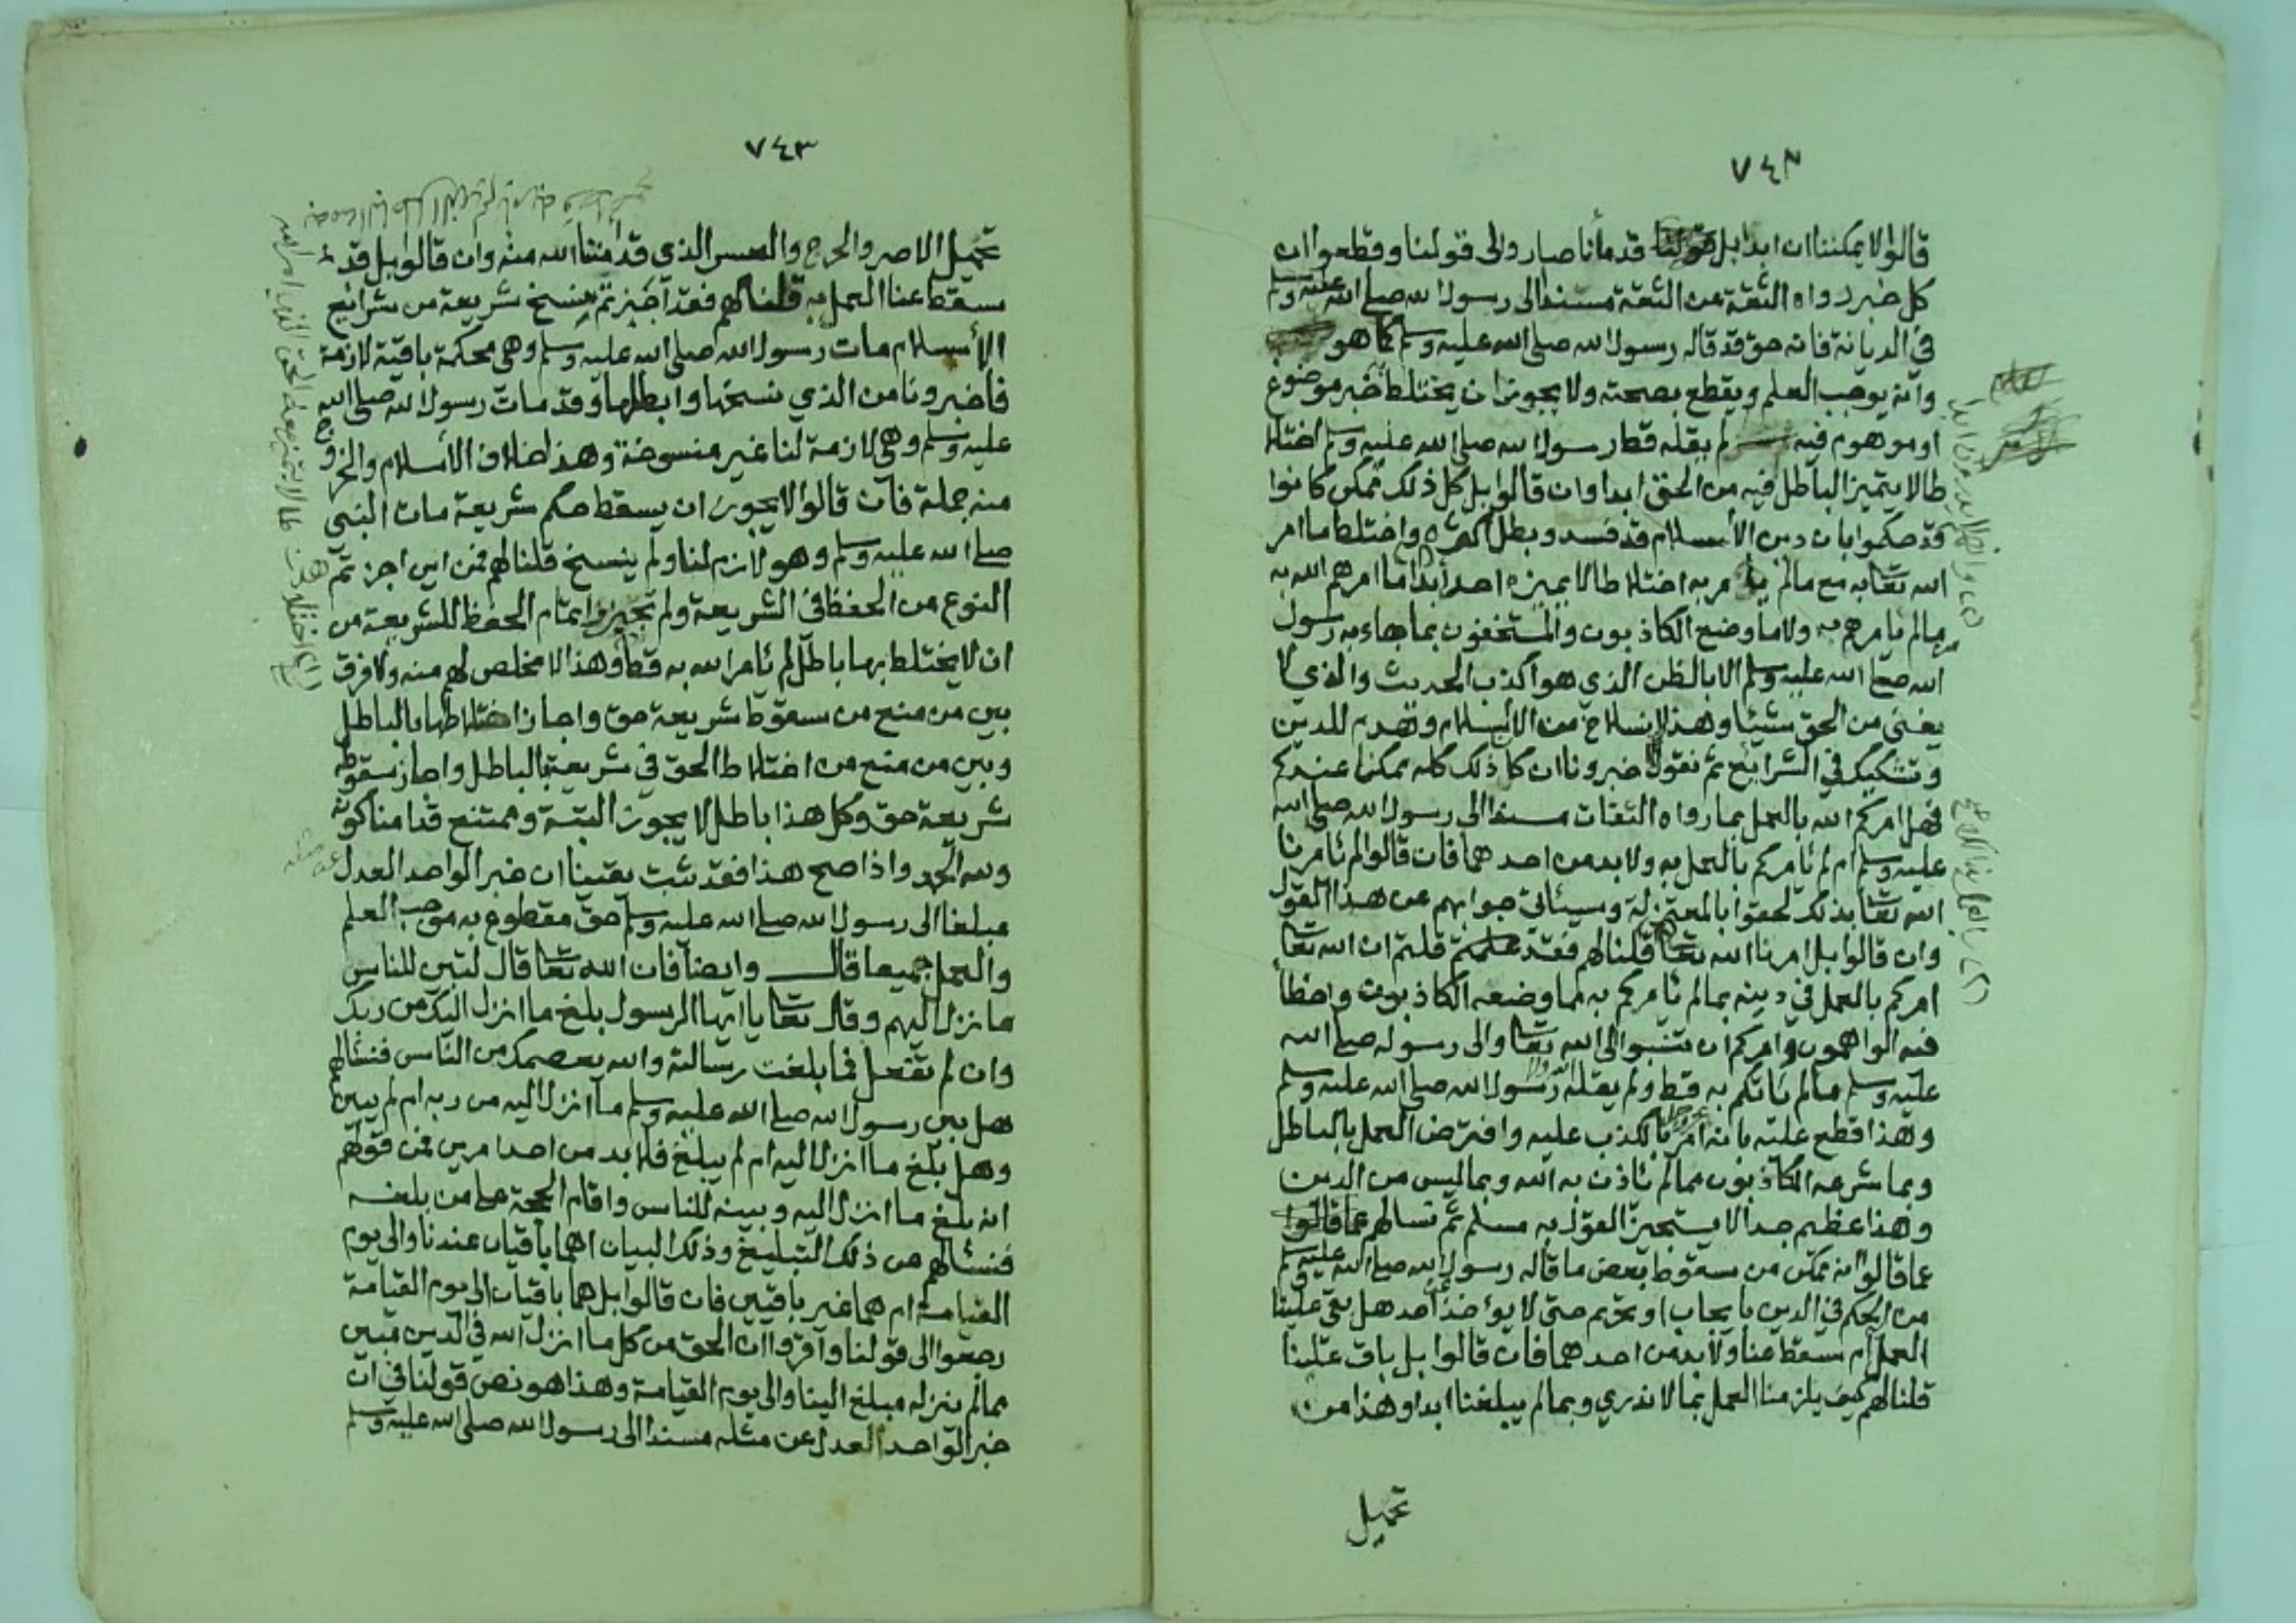 ٧٤٢
قالوا لا يمكننا ان ابدا بل قولنا قد مأنا صاروا لى قولنا وقطعوا ان
كل خبر رواه الثقة عن الثقة مسندا الى رسول الله صلى الله عليه وسلم
في الديانة فانه حق قد قاله رسول الله صلى الله عليه وسلم كما هو
وأنه يوجب العلم ويقطع بصحته ولا يجوز ان يختلط خبر موضوع
او موهوم فيه لم يقله قط رسول الله صلى الله عليه وسلم اختلا
طا لا يتميز الباطل فيه من الحق ابدا وان قالوا بل كل ذلك ممكن كانوا
قد حكموا بان دين الأسلام قد فسد وبطل اكثره واختلط ما امر
الله تعا به مع مالم يأمر به اختلاطا لا يميزه احد أبدا ما امرهم الله به
مما لم يامرهم به ولا ما وضع الكاذبون والمستخفون بما جاء به رسول
الله صلى الله عليه وسلم الا بالظن الذي هو اكذب الحديث والذي لا
يغنى من الحق شيئا وهذا انسلاخ من الأسلام وهدم للدين
وتشكيك في الشرايع ثم نقول اخبرونا ان كا ذلك كله ممكنا عندكم
فهل امركم الله بالعمل بما رواه الثقات مسندا الى رسول الله صلى الله
عليه وسلم ام لم يأمركم بالعمل به ولا بد من احدهما فان قالوا لم يأمرنا
الله تعا بذلك لحقوا بالمعتزلة وسيأتي جوابهم عن هذا القول
وان قالوا بل امرنا الله تعا بذلك قلنا لهم فقد قلتم ان الله تعا
امركم بالعمل في دينه بمالم يأمركم به مما وضعه الكاذبون واخطأ
فيه الواهمون وامركم ان تنسبوا الى الله تعا والى رسوله صلى الله
عليه وسلم مالم يأتكم به قط ولم يقله الله ولا رسول الله صلى الله عليه وسلم
وهذا قطع عليه بانه عز وجل امر بالكذب عليه وافترض العمل بالباطل
وبما شرعه الكاذبون مما لم يأذن به الله وبما ليس من الدين
وهذا عظيم جدا لا يستجيز القول به مسلم ثم نسالهم عما قالوا
عما قالوا انه ممكن من سقوط بعض ما قاله رسول الله صلى الله عليه وسلم
من الحكم في الدين بايجاب او تحريم حتى لا يوخذ عن أحد هل بقى علينا
العمل ام سقط عنا ولا بد من احدهما فان قالوا بل باق علينا
قلنا لهم كيف يلزمنا العمل بما لا ندري وبما لم يبلغنا ابدا وهذا من
تحميل
٧٤٣
تحميل الاصر والحرج والعسر الذي قد أمننا الله منه وان قالوا بل قد
سقط عنا العمل به قلنا لهم فقد أجزتم نسخ شريعة من شرائع
الأسلام مات رسول الله صلى الله عليه وسلم وهى محكمة باقية لازمة
فاخبرونا من الذي نسخها وابطلها وقد مات رسول الله صلى الله
عليه وسلم وهى لازمة لنا غير منسوخة وهذا خلاف الأسلام والخروج
منه جملة فان قالوا لا يجوز ان يسقط حكم شريعة مات النبى
صلى الله عليه وسلم وهو لازم لنا ولم ينسخ قلنا لهم فمن اين اجزتم هذا
النوع من الحفظ في الشريعة ولم تجيزوا تمام الحفظ للشريعة من
ان لا يختلط بها باطل لم يأمر الله به قط وهذا لا مخلص لهم منه ولا فرق
بين من منع من سقوط شريعة حق واجاز اختلاطها بالباطل
وبين من منع من اختلاط الحق في شريعة بالباطل واجاز سقوط
شريعة حق وكل هذا باطل لا يجوز البتة وممتنع قد امنا كونه
ولله الحمد واذا صح هذا فقد ثبت يقينا ان خبر الواحد العدل
مبلغا الى رسول الله صلى الله عليه وسلم حق مقطوع به موجب العلم
والعمل جميعا قال وايضا فان الله تعا قال لتبين للناس
ما نزل اليهم وقال تعا يا ايها الرسول بلغ ما انزل اليك من ربك
وان لم تفعل فما بلغت رسالته والله يعصمك من الناس فنسألهم
هل بين رسول الله صلى الله عليه وسلم ما انزل اليه من ربه ام لم يبين
وهل بلغ ما انزل اليه ام لم يبلغ فلا بد من احد امرين فمن قولهم
انه بلغ ما انزل اليه وبينه للناس واقام الحجة على من بلغه
فنسألهم عن ذلك التبليغ وذلك البيان اهما باقيان عندنا والى يوم
القيامة ام هما غير باقيين فان قالوا بل هما باقيان الى يوم القيامة
رجعوا الى قولنا وأقروا ان الحق من كل ما انزل الله في الدين مبين
مما لم ينزله مبلغ الينا والى يوم القيامة وهذا هو نص قولنا في ان
خبر الواحد العدل عن مثله مسندا الى رسول الله صلى الله عليه وسلم